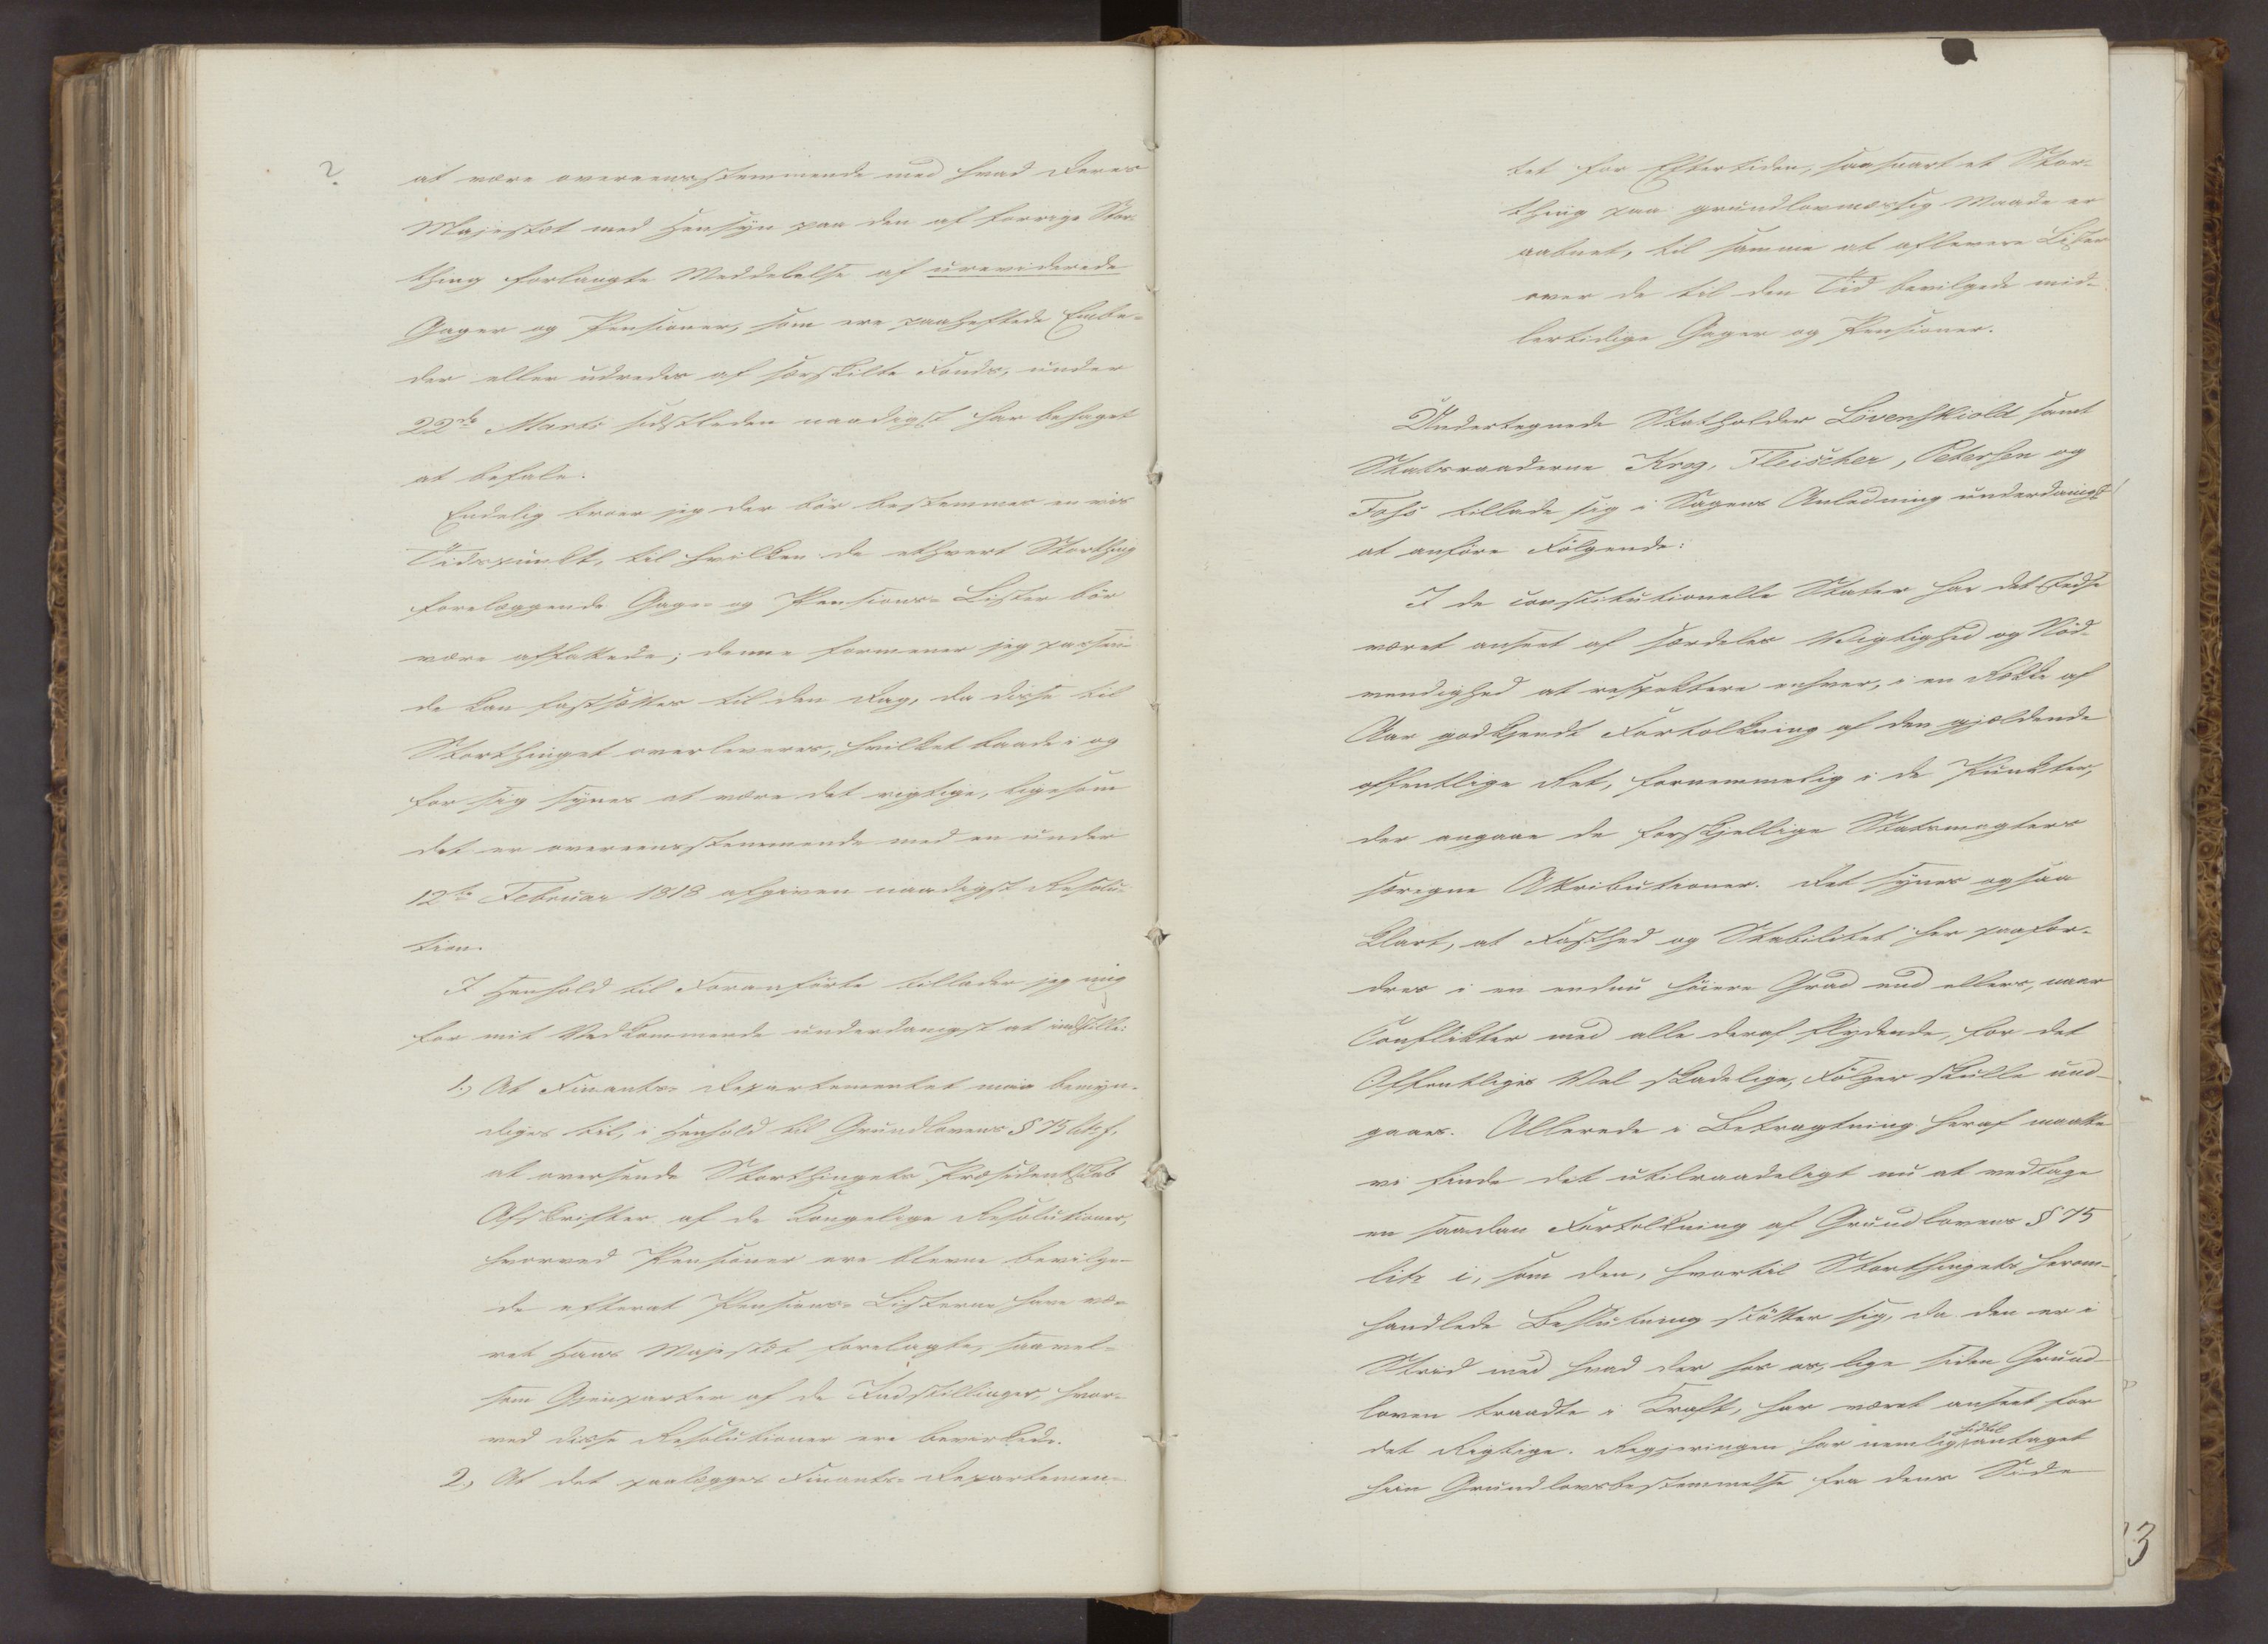 ?
at være overeensstemmende med hvad Deres
Majestæt med Hensyn paa den af forrige Stor-
thing forlangte Meddelelse af ureviderede
Gager og Pensioner, som ere paaheftede Embe-
der eller udredes af særskilte Fonds, under
22de Marts sidstleden naadigst har behaget
at befale.
Endelig troer jeg der bör bestemmes en vis
Tidspunkt, til hvilken de ethvert Storthing
forelæggende Gage- og Pensions-Lister bör
være affattede; denne formener jeg passen-
de kan fastsættes til den Dag, da disse til
Storthinget overleveres, hvilket baade i og
for sig synes at være det rigtige, ligesom
det er overeensstemmende med en under
12te Februar 1818 afgiven naadigst Resolu-
tion.
I Henhold til Foranförte tillader jeg mig
for mit Vedkommende underdanigst at indstille:
1.) At Finants-Departementet maa bemyn-
diges til, i Henhold til Grundlovens § 75 litr. f.
at oversende Storthingets Præsidentskab
Afskrifter af de Kongelige Resolutioner,
hvorved Pensioner ere blevne bevilge-
de efterat Pensions-Listerne have væ-
ret Hans Majestæt forelagte, saavel-
som Gjenparter af de Indstillinger, hvor-
ved disse Resolutioner ere bevirkede.
2.) At det paalægges Finants-Departemen-
tet for Eftertiden, saasnart et Stor-
thing paa grundlovmæssig Maade er
aabnet, til samme at aflevere Lister
over de til den Tid bevilgede mid-
lertidige Gager og Pensioner.
Undertegnede Statholder Lövenskiold samt
Statsraaderne Krog, Fleischer, Petersen og
Foss tillade sig i Sagens Anledning underdanigst
at anföre Fölgende:
I de constitutionelle Stater har det stedse
været anseet af særdeles Vigtighed og Nöd-
vendighed at respektere enhver, i en Række af
Aar godkjendt Fortolkning af den gjældende
offentlige Ret, fornemmelig i de Punkter,
der angaae de forskjellige Statsmagters
særegne Attributioner. Det synes ogsaa
klart, at Fasthed og Stabilitet her paafor-
dres i en endnu höiere Grad end ellers, naar
Conflikter med alle deraf flydende, for det
Offentliges Vel skadelige, Fölger skulle und-
gaaes. Allerede i Betragtning heraf maatte
vi finde det utilraadeligt nu at vedtage
en saadan Fortolkning af Grundlovens § 75
litr i, som den, hvortil Storthingets herom-
handlede Beslutning stötter sig, da den er i
Strid med hvad der hos os, lige siden Grund-
loven traadte i Kraft, har været anseet for
det Rigtige. Regjeringen har nemlig hidtil antaget
hiin Grundlovsbestemmelse fra dens Side
3